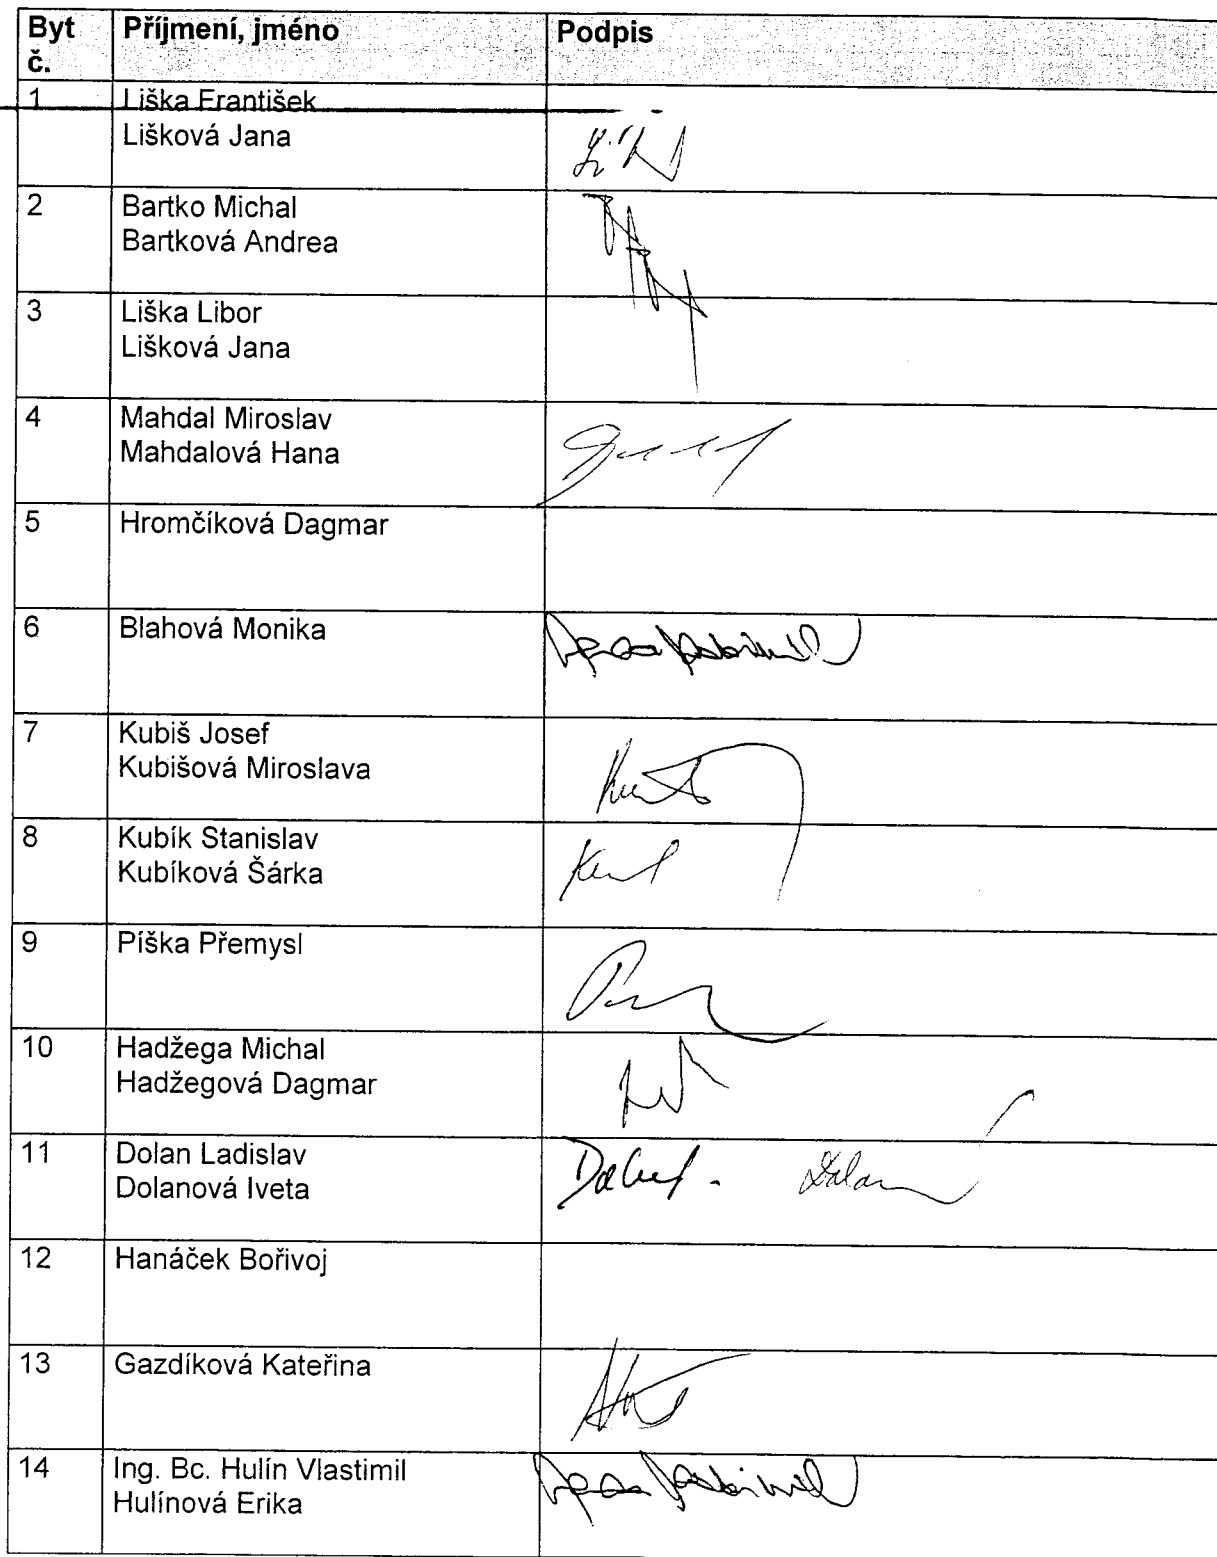 Byt č.
Příjmení, jméno
Podpis
1
Liška František
Lišková Jana
2
Bartko Michal
Bartková Andrea
3
Liška Libor
Lišková Jana
4
Mahdal Miroslav
Mahdalová Hana
5
Hromčíková Dagmar
6
Blahová Monika
7
Kubiš Josef
Kubišová Miroslava
8
Kubík Stanislav
Kubíková Šárka
9
Píška Přemysl
10
Hadžega Michal
Hadžegová Dagmar
11
Dolan Ladislav
Dolanová Iveta
12
Hanáček Bořivoj
13
Gazdíková Kateřina
14
Ing. Bc. Hulín Vlastimil
Hulínová Erika